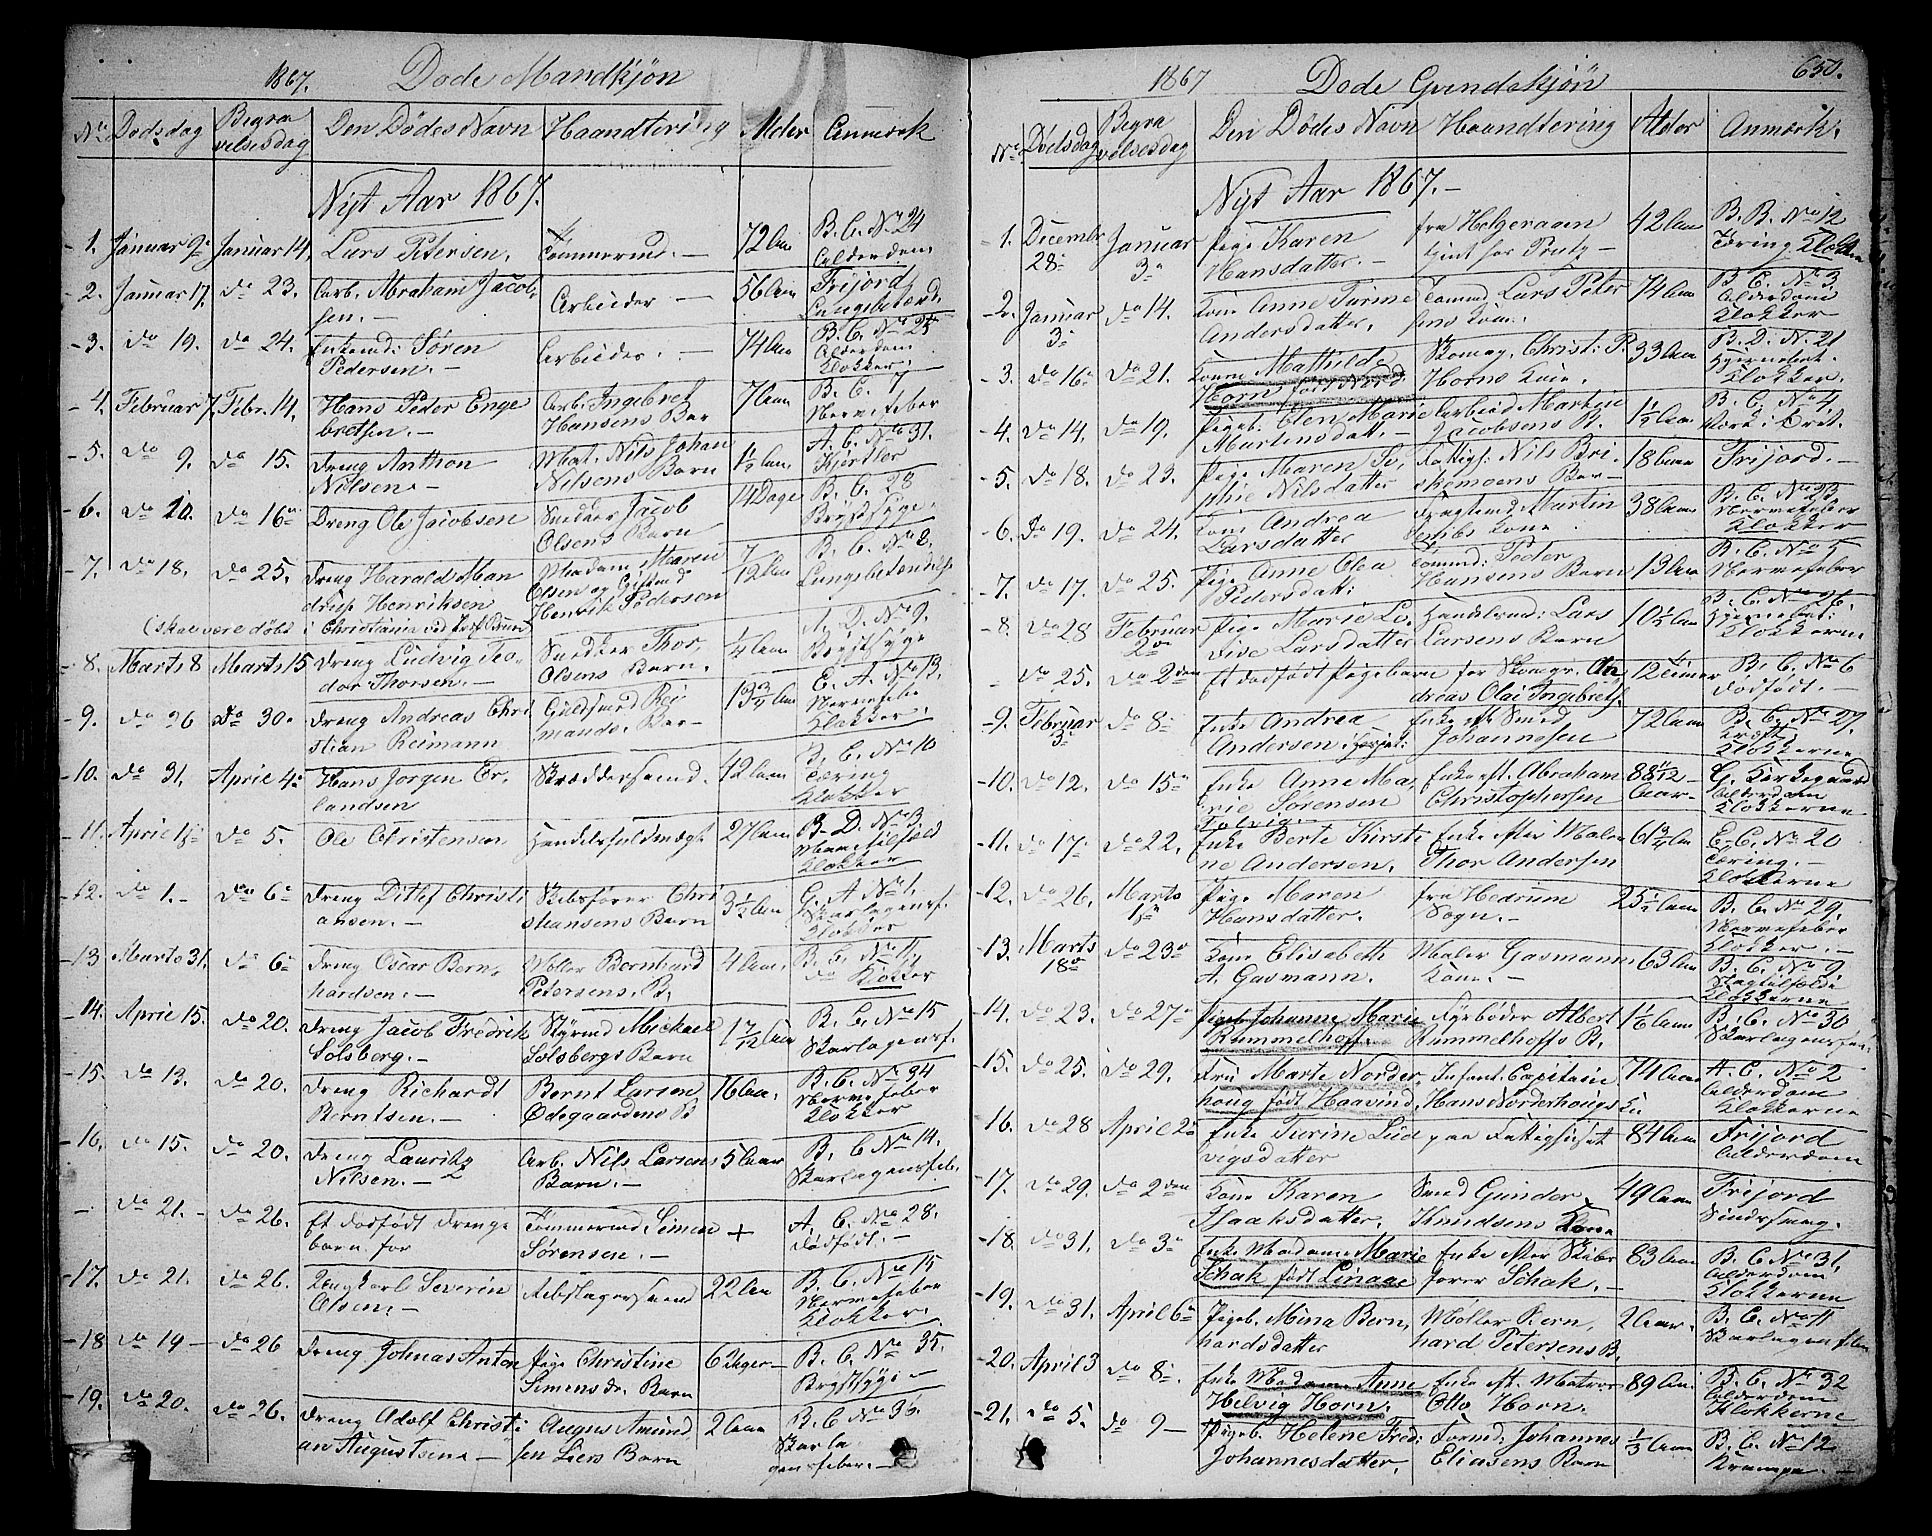 1867. Døde Mandkjøn
No Dødsdag Begravelsesdag Den Dødes Navn Haandtering Alder Anmærk
Nyt Aar 1867.
1. Januar 9de Januar 14. Lars Petersen. Tømmermd. 72 Aar B. C. No 24 Alderdom
2. Januar 17. do 23. Arb. Abraham Jacobsen. Arbeider 56 Aar Frijord Lungebetænd.
3. do 19. do 24. Enkemd: Søren Pedersen. Arbeider. 74 Aar B. C. No 25 Alderdom Klokker.
4. Februar 7. Febr. 14. Hans Peder Engebretsen. Arb. Ingebret Hansens Bar 7 Aar B. C. 7 Nervefeber
5. do 9. do 15. Dreng Anthon Nilsen Mat. Nils Johan Nilsens Barn 1½ Aar A. C. No 31.
6. do 10. do 16 Dreng Ole Jacobsen Snedker Jacob Olsens Barn 14 Dage B. C. 28 Brystsyge.
7. do 18. do 25. Dreng Harald Mandrup Henriksen Madam Maren Olsen og Giftemd Henrik Pedersen 7/12 Aar B. C. No 2. Lungebetændelse
(skal være døbt i Christiania
8. Marts 8 Marts 15 Dreng Ludvig Teodor Thorsen. Snedker Thor Olsens Barn. ¼ Aar A. D. No 9. Brystsyge
9. do 26 do 30. Dreng Andreas Christian Reimann Guldsmed Reimands Bar 13¾ Aar E. A. No 13. Nervefebe Klokker.
10. do 31. April 4. Hans Jørgen Erlandsen Skræddersvend. 42 Aar B. C. No 10 Tæring Klokker
11. April 1ste do 5. Ole Christensen Handelsfuldmægt 27 Aar B. D. No 3. Klokker
12. do 1. do 6 Dreng Ditlef Christiansen. Skibsfører Christiansens Barn 3½ Aar G. A No 1. Skarlagensf. Klokker
13 Marts 31. do 6 Dreng Oscar Bernhardsen. Møller Bernhard Petersens B. 4 Aar. B. C. No 11 do Klokker
14. April 15. do 20. Dreng Jacob Fredrik Solsberg. Styrmd Mickael Solsbergs Barn 1 7/12 Aar B. C. No 15 Skarlagensf.
15. do 13. do 20. Dreng Richardt Berntsen. Bernt Larsen Ødegaardens B 16 Aar. B. C. No 34 Nervefeber Klokker
16. do 15. do 20. Dreng Lauritz Nilsen. Arb. Nils Larsens Barn. 5 Aar B. C No 14. Skarlagensfeb.
do 21. do 26. Et dødfødt Drengebarn for Tømmermd. Simen Sørensen. + A. C. No 28. dødfødt.
17. do 21. do 26. Ungkarl Severin Olsen. Rebslagersvend 22 Aar B. C. No 15 Nervefeber Klokker.
18 do 19 do 26 Dreng Johnas Anton Pige Christine Simensdr. Barn 6 Uger B. C. No 35. Brystsyge
19. do 20. do 26. Dreng Adolf Christian Augustsen August Amundsen Liers Barn 2 Aar B. C No 36. Skarlagensfeber.
1867 Døde Qvindekjøn 650.
No Dødsdag Begravelsesdag Den Dødes Navn Haandtering Alder Anmærk.
Nyt Aar 1867.
1. Decembr 28. Januar 3. Pige Karen Hansdatter. fra Helgeraaen tjent for Prutz 42 Aar B. B. No 12 Tæring Klokken
2. Januar 3. do 14. Kone Anne Turine Andersdatter. Tømmd. Lars Petersens Kone. 74 Aar B. C. No 3. Alderdom Klokker
3. do 16 do 21. Konen Mathilde Horn født Nord Skomag. Christ: P. Horns Kone. 33 Aar B. D. N. 21 Klokker.
4. do 14. do 19. Pigeb. Elen Marie Martensdatt. Arbeid Marten Jacobsens B. 1½ Aar B. C. No 4.
5. do 18. do 23. Pige Maren Sophie Nilsdatter Fattigf: Nils Briskemoens Bar 18 Aar Frijord.
6. do 19. do 24. Kone Andrea Larsdatter Martin Kone. 38 Aar B. C. No 23. Nervefeber Klokker
7. do 17. do 25. Pige Anne Olea Pedersdatt: Tømmd: Peder Hansens Barn 13 Aar B. C. No 5 Nervefeber
8. do 28 Februar 2. Pige Marie Lovise Larsdatter Lars Larsens Barn 10½ Aar B. C. No 26. Klokkerne
do 25. do 2den Et dødfødt Pigebarn for Skomgr. Andreas Olai Ingebrets. 12 Timer B. C. No 6 Dødfødt.
9. Februar 3. do 8. Enke Andrea Andersen Enke eft Smed Johannesen 72 Aar B. C. No 27. Kræft Klokkerne
10. do 12. do 15 Enke Anne Marie Sørensen Enke eft. Abraham Christophersen 88 11/12 Aar G. Kirkegaard Alderdom Klokkerne
11. do 17. do 22. Enke Berte Kirstine Andersen. Enke efter Maler Thor Andersen 61¾ Aa E. C. No 20 Tæring. Klokkerne
12. do 26. Marts 1ste Pige Maren Hansdatter. fra Hedrum Sogn. 25½ Aar B. C. No 29. Nervefeber Klokker.
13. Marts 18 do 23 Kone Elisabeth A. Gasmann. Maler Gasmann Kone. 63 Aar B. C. No 9. Slagtilfælde Klokkerne
14. do 23. do 27 Pigeb. Johanne Marie Rummelhoff. Fyrbøder Albert Rummelhoffs B. 1 1/6 Aar B. C. No 30 Skarlagensfe
15. do 25. do 29. Fru Marte Norderhoug født Haavind Infant. Capitain Hans Norderhougs Ku 74 Aar A. C. No 2 Alderdom Klokkerne
16. do 28 April 2. Enke Turine Ludvigsdatter paa Fattighuset 84 Aar Frijord Alderdom
17. do 29. do 2den Kone Karen Isaaksdatter. Smed Gunder Knudsens Kone 49 Aar Frijord
18. do 31. do 3 Enke Madam Marie Schak født Linaae Enke efter Skibsfører Schak. 83 Aar B. C No 31. Alderdom Klokkerne
19. do 31. April 6 Pigeb. Mina Bernhardsdatter Møller Bernhard Petersens B. 2 Aar. B. C. No 11 Skarlagensfeb
20. April 3 do 8. Enke Madam Anne Helvig Horn. Enke eft. Matros Otto Horn. 89 Aar B. C. No 32 Alderdom Klokkerne
21. do 5. do 9 Pigeb. Helene Fred: Johannesdatter. Formd. Johannes Eliasens Barn ⅓ Aar B. C. No 12 Krampe.